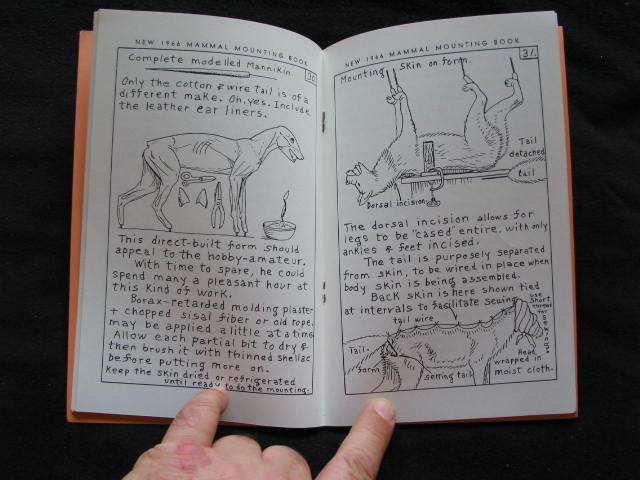 NEW 1966 MAMMAL MOUNTING BOOK
30
Complete modelled Mannikin.
Only the cotton & wire tail is of a
different make. Oh, yes. Include
the leather ear liners.
This direct-built form should
appeal to the hobby-amateur.
With time to spare, he could
spend many a pleasant hour at
this kind of work.
Borax-retarded molding plaster
+ chopped sisal fiber or old rope,
may be applied a little at a time
Allow each partial bit to dry &
then brush it with thinned shellac
before putting more on.
Keep the skin dried or refrigerated
until ready to do the mounting.
NEW 1966 MAMMAL MOUNTING BOOK
31.
Mounting skin on form.
Tail
detached
tail
Dorsal incision
The dorsal incision allows for
legs to be "cased" entire, with only
ankles & feet incised.
The tail is purposely separated
from skin, to be wired in place when
body skin is being assembled.
Back skin is here shown tied
at intervals to facilitate sewing
tail wire
use
short
thread
for
Tail.
form
setting tail
Head
wrapped in
moist cloth.